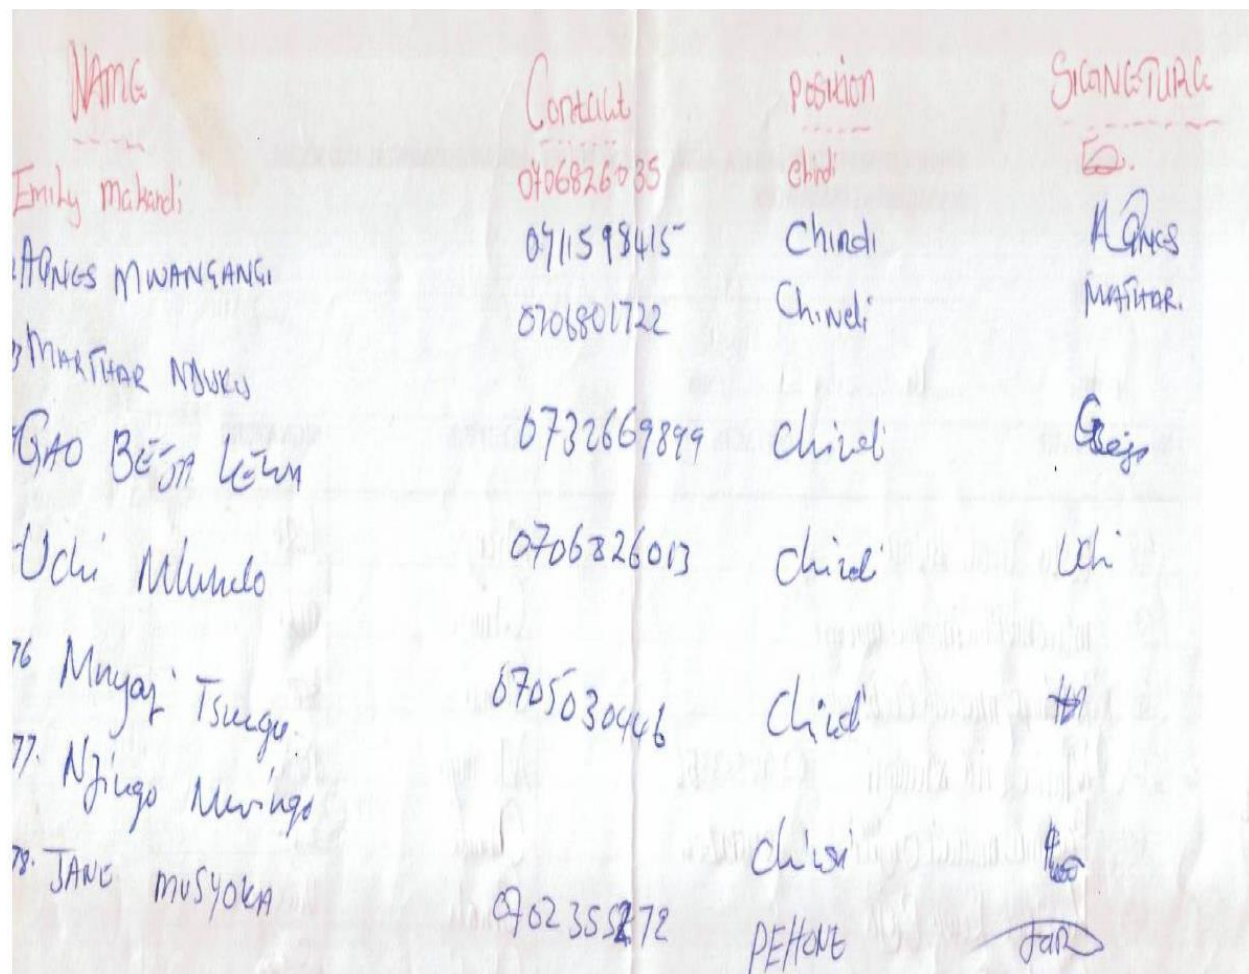 NAME Contact Position SIGINETURE
Emily Makandi 0706826035 Chindi
AGNES MWANGANGI 0711598415 Chindi AGNES
3 MARTHAR NDUKU 0706801722 Chindi MATHAR.
GAO BEJA LEWA 0732669899 Chindi
Uchi Mlundo 0706826013 Chindi Uchi
76 Mnyazi Tsungu. 0705030446 Chindi
77. Njingo Mwingo Chindi
78. JANE MUSYOKA 0702355272 PEHONE JaR